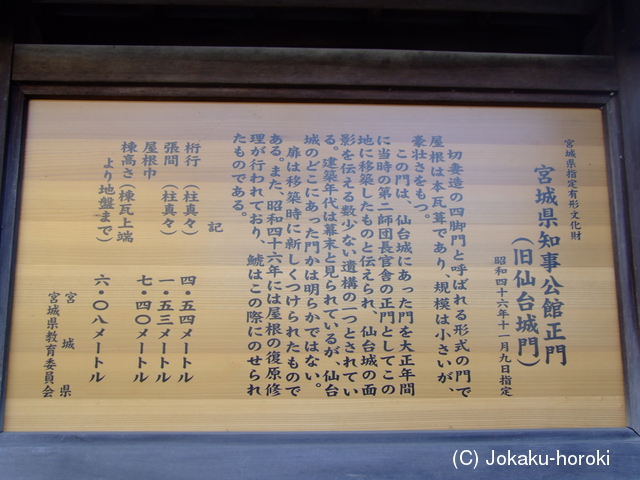 宮城県指定有形文化財
宮城県知事公館正門
（旧仙台城門）
昭和四十六年十一月九日指定
切妻造の四脚門と呼ばれる形式の門で
屋根は本瓦葺であり、規模は小さいが、
豪壮さをもつ。
この門は、仙台城にあった門を大正年間
に当時の第二師団長官舎の正門としてこの
地に移築したものと伝えられ、仙台城の面
影を伝える数少ない遺構の一つとされてい
る。建築年代は幕末と見られているが、仙台
城のどこにあった門かは明らかではない。
扉は移築時に新しくつけられたもので
ある。また、昭和四十六年には屋根の復原修
理が行われており、鯱はこの際にのせられ
たものである。
記
桁行（柱真々）四・五四メートル
張間（柱真々）一・五三メートル
屋根巾 七・四〇メートル
棟高さ（棟瓦上端
より地盤まで）六・〇八メートル
宮城県
宮城県教育委員会
(C) Jokaku-horoki